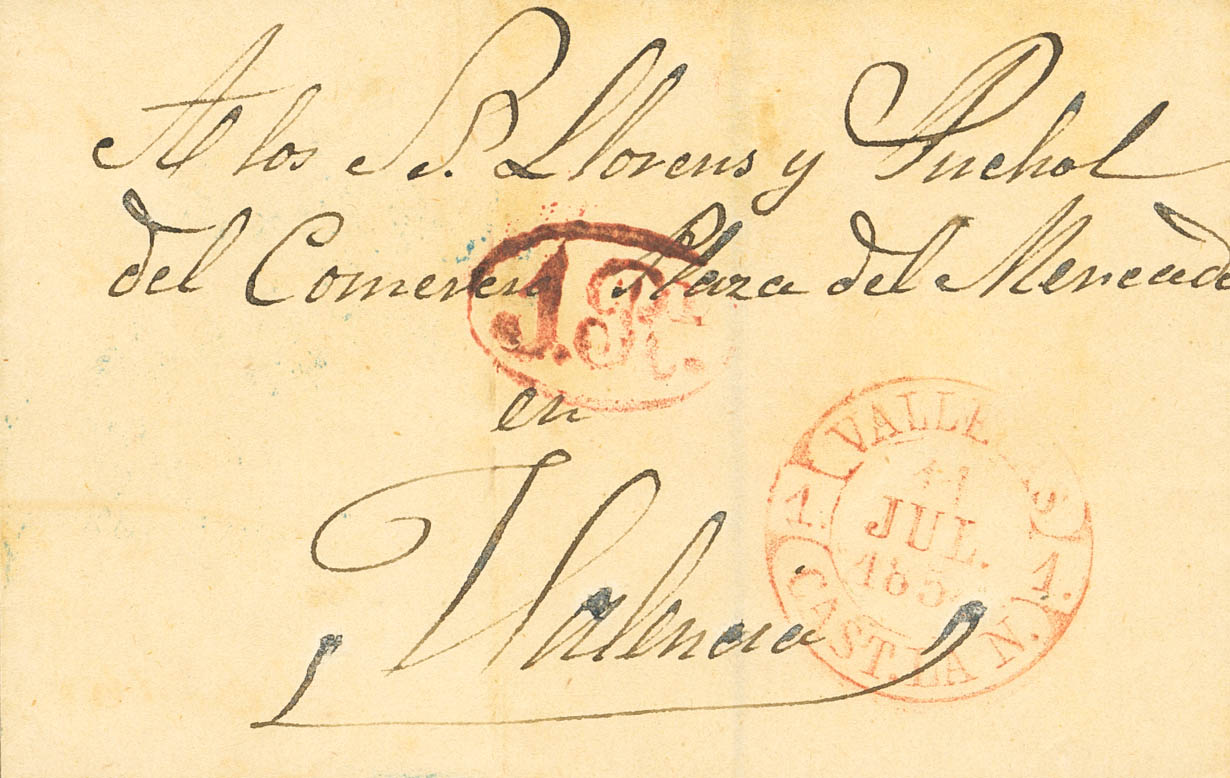 A los SS. Llorens y Puchol
del Comercio Plaza del Mercado
1. R
en
Valencia
VALLE S
1. 1.
11
JUL.
185
CAST. LA N.